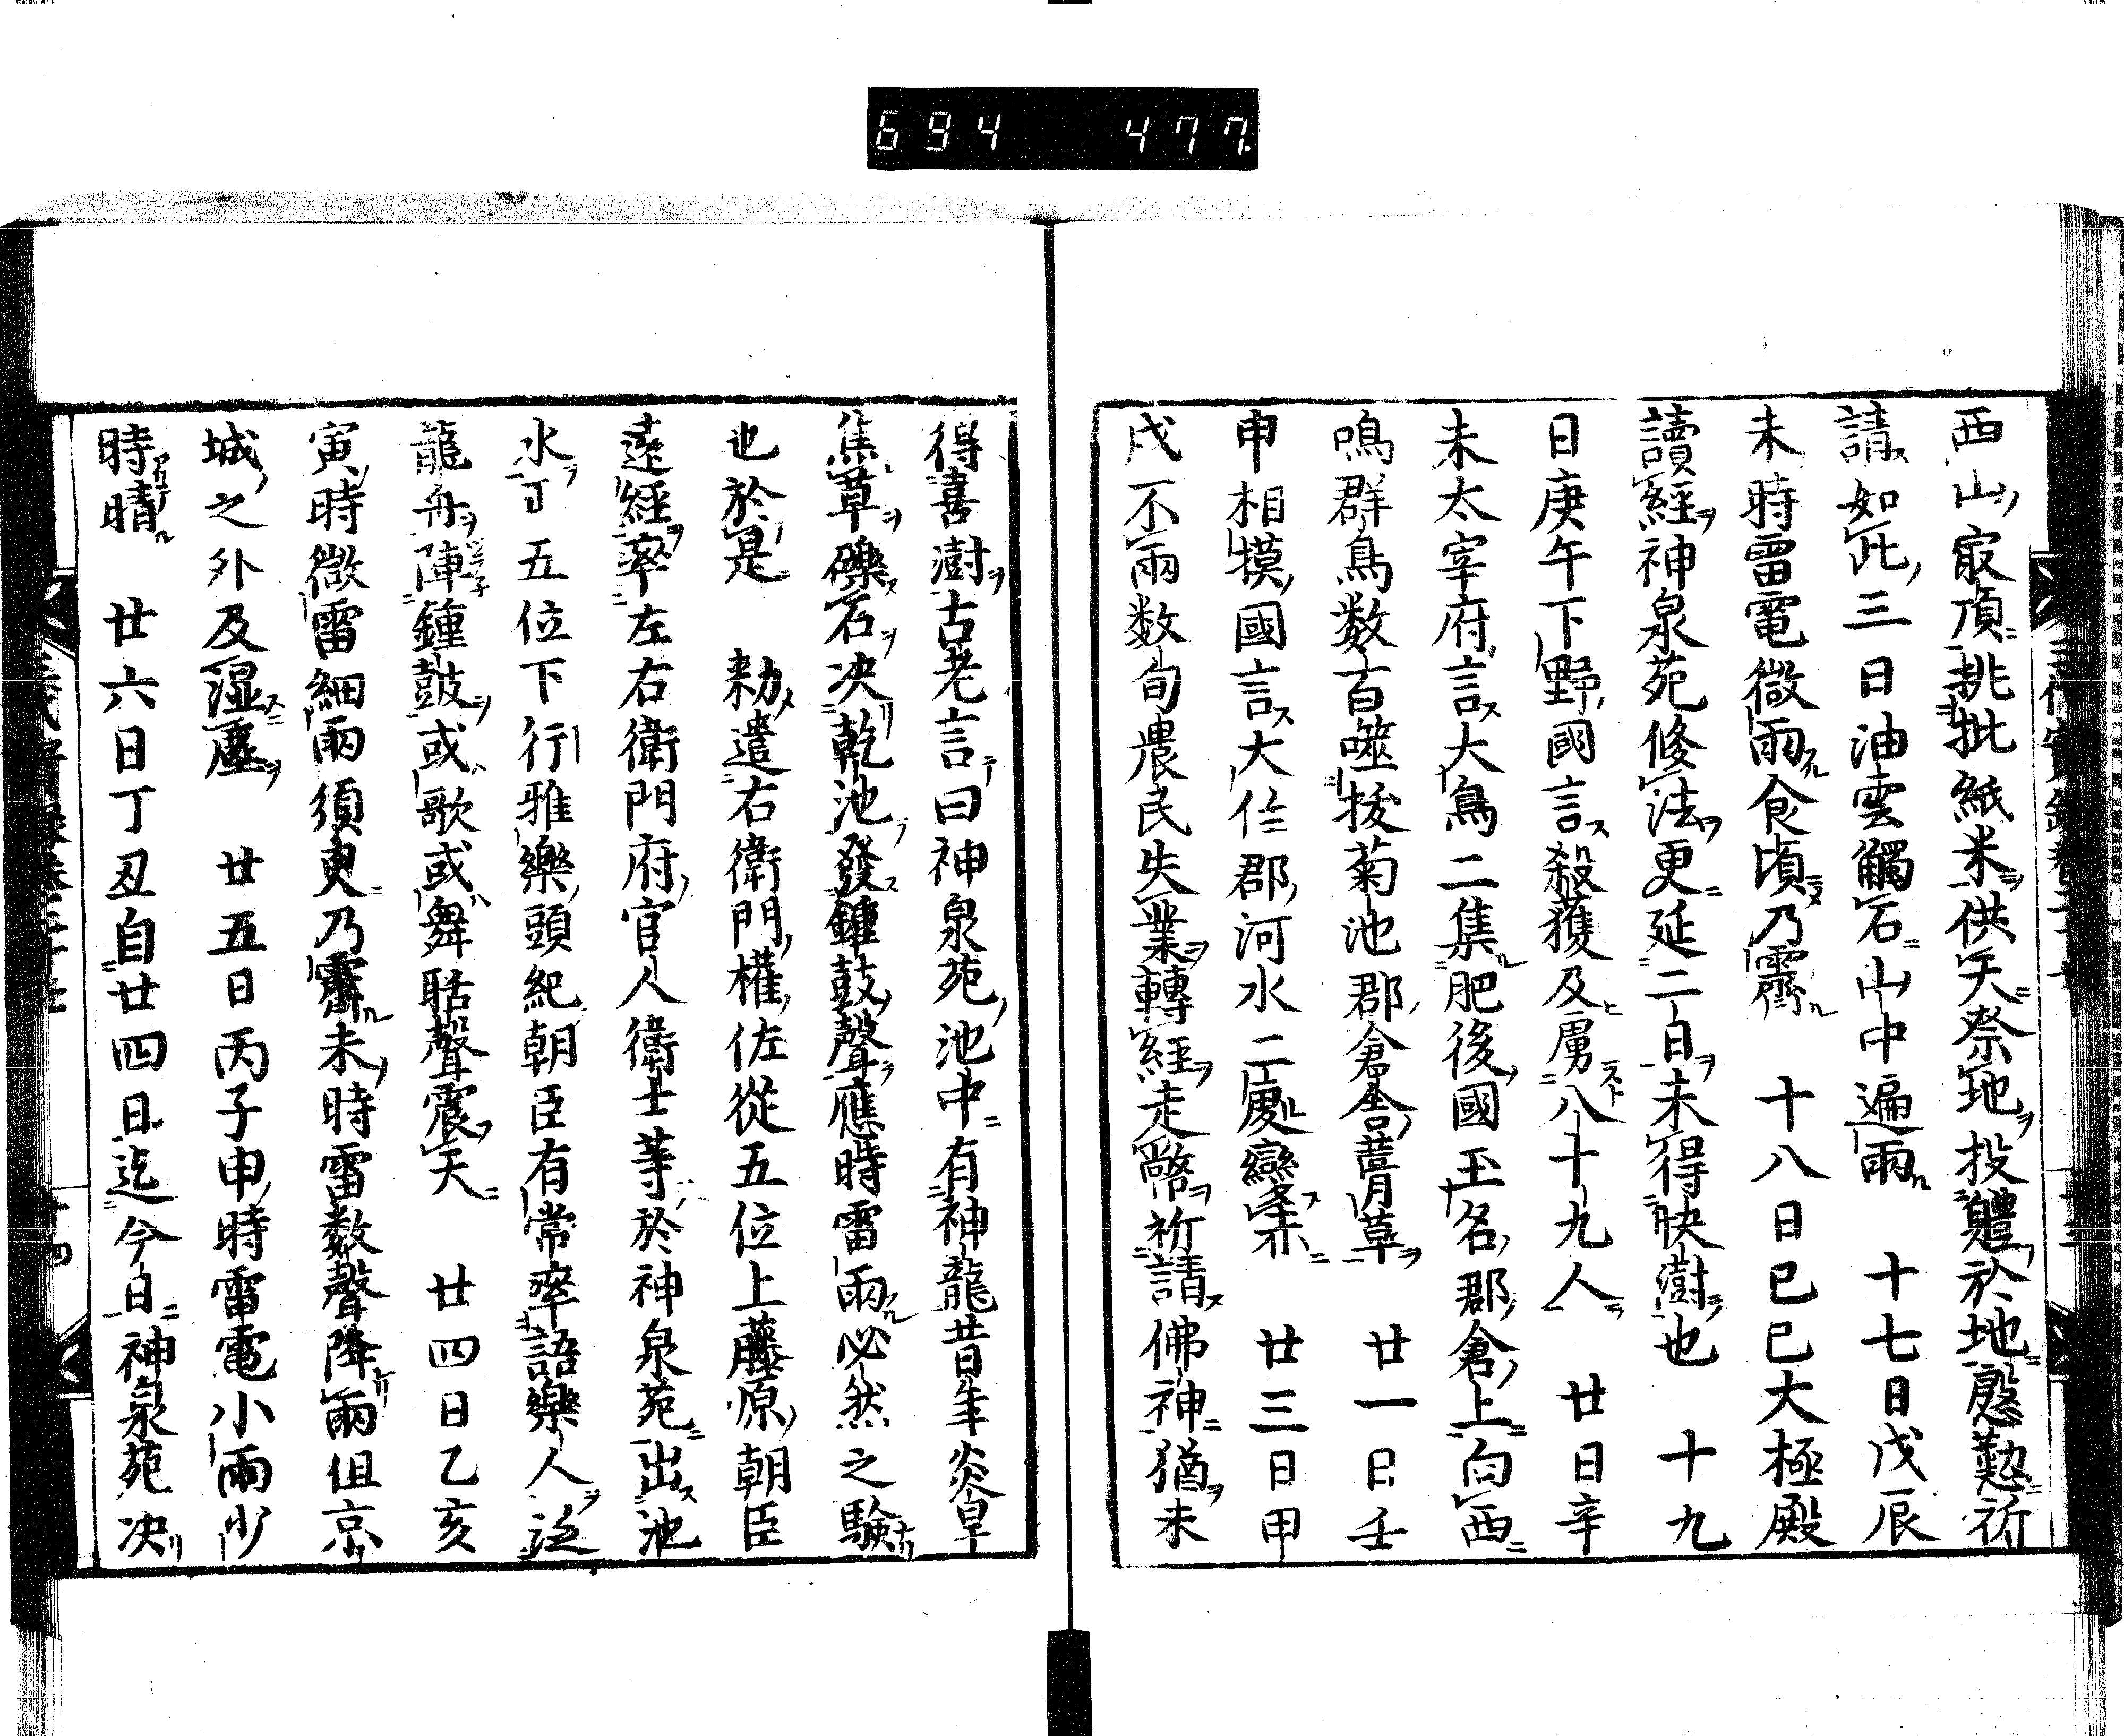 694 477
西山最頂排批紙米供天祭地投軆於地慇懃祈
請如此三日油雲觸石山中遍雨 十七日戊辰
未時雷電微雨食頃乃霽 十八日己巳大極殿
讀經神泉苑修法更延二日未得快澍也 十九
日庚午下野國言殺獲及虜八十九人 廿日辛
未太宰府言大鳥二集肥後國玉名郡倉上向西
鳴群鳥数百噬拔菊池郡倉舎葺草 廿一日壬
申相摸國言大住郡河水二處變柒赤 廿三日甲
戌不雨数旬農民失業轉經走幣祈請佛神猶未
得喜澍古老言曰神泉苑池中有神龍昔年炎旱
焦草礫石决乾池發鐘鼓聲應時雷雨必然之驗
也於是 勅遣右衛門權佐從五位上藤原朝臣
遠經率左右衛門府官人衛士等於神泉苑出池
水丁五位下行雅樂頭紀朝臣有常率語樂人泛
龍舟陣鍾鼓或歌或舞聒聲震天 廿四日乙亥
寅時微雷細雨須臾乃霽未時雷数聲降雨但京
城之外及湿塵 廿五日丙子申時雷電小雨少
時晴 廿六日丁丑自廿四日迄今日神泉苑决